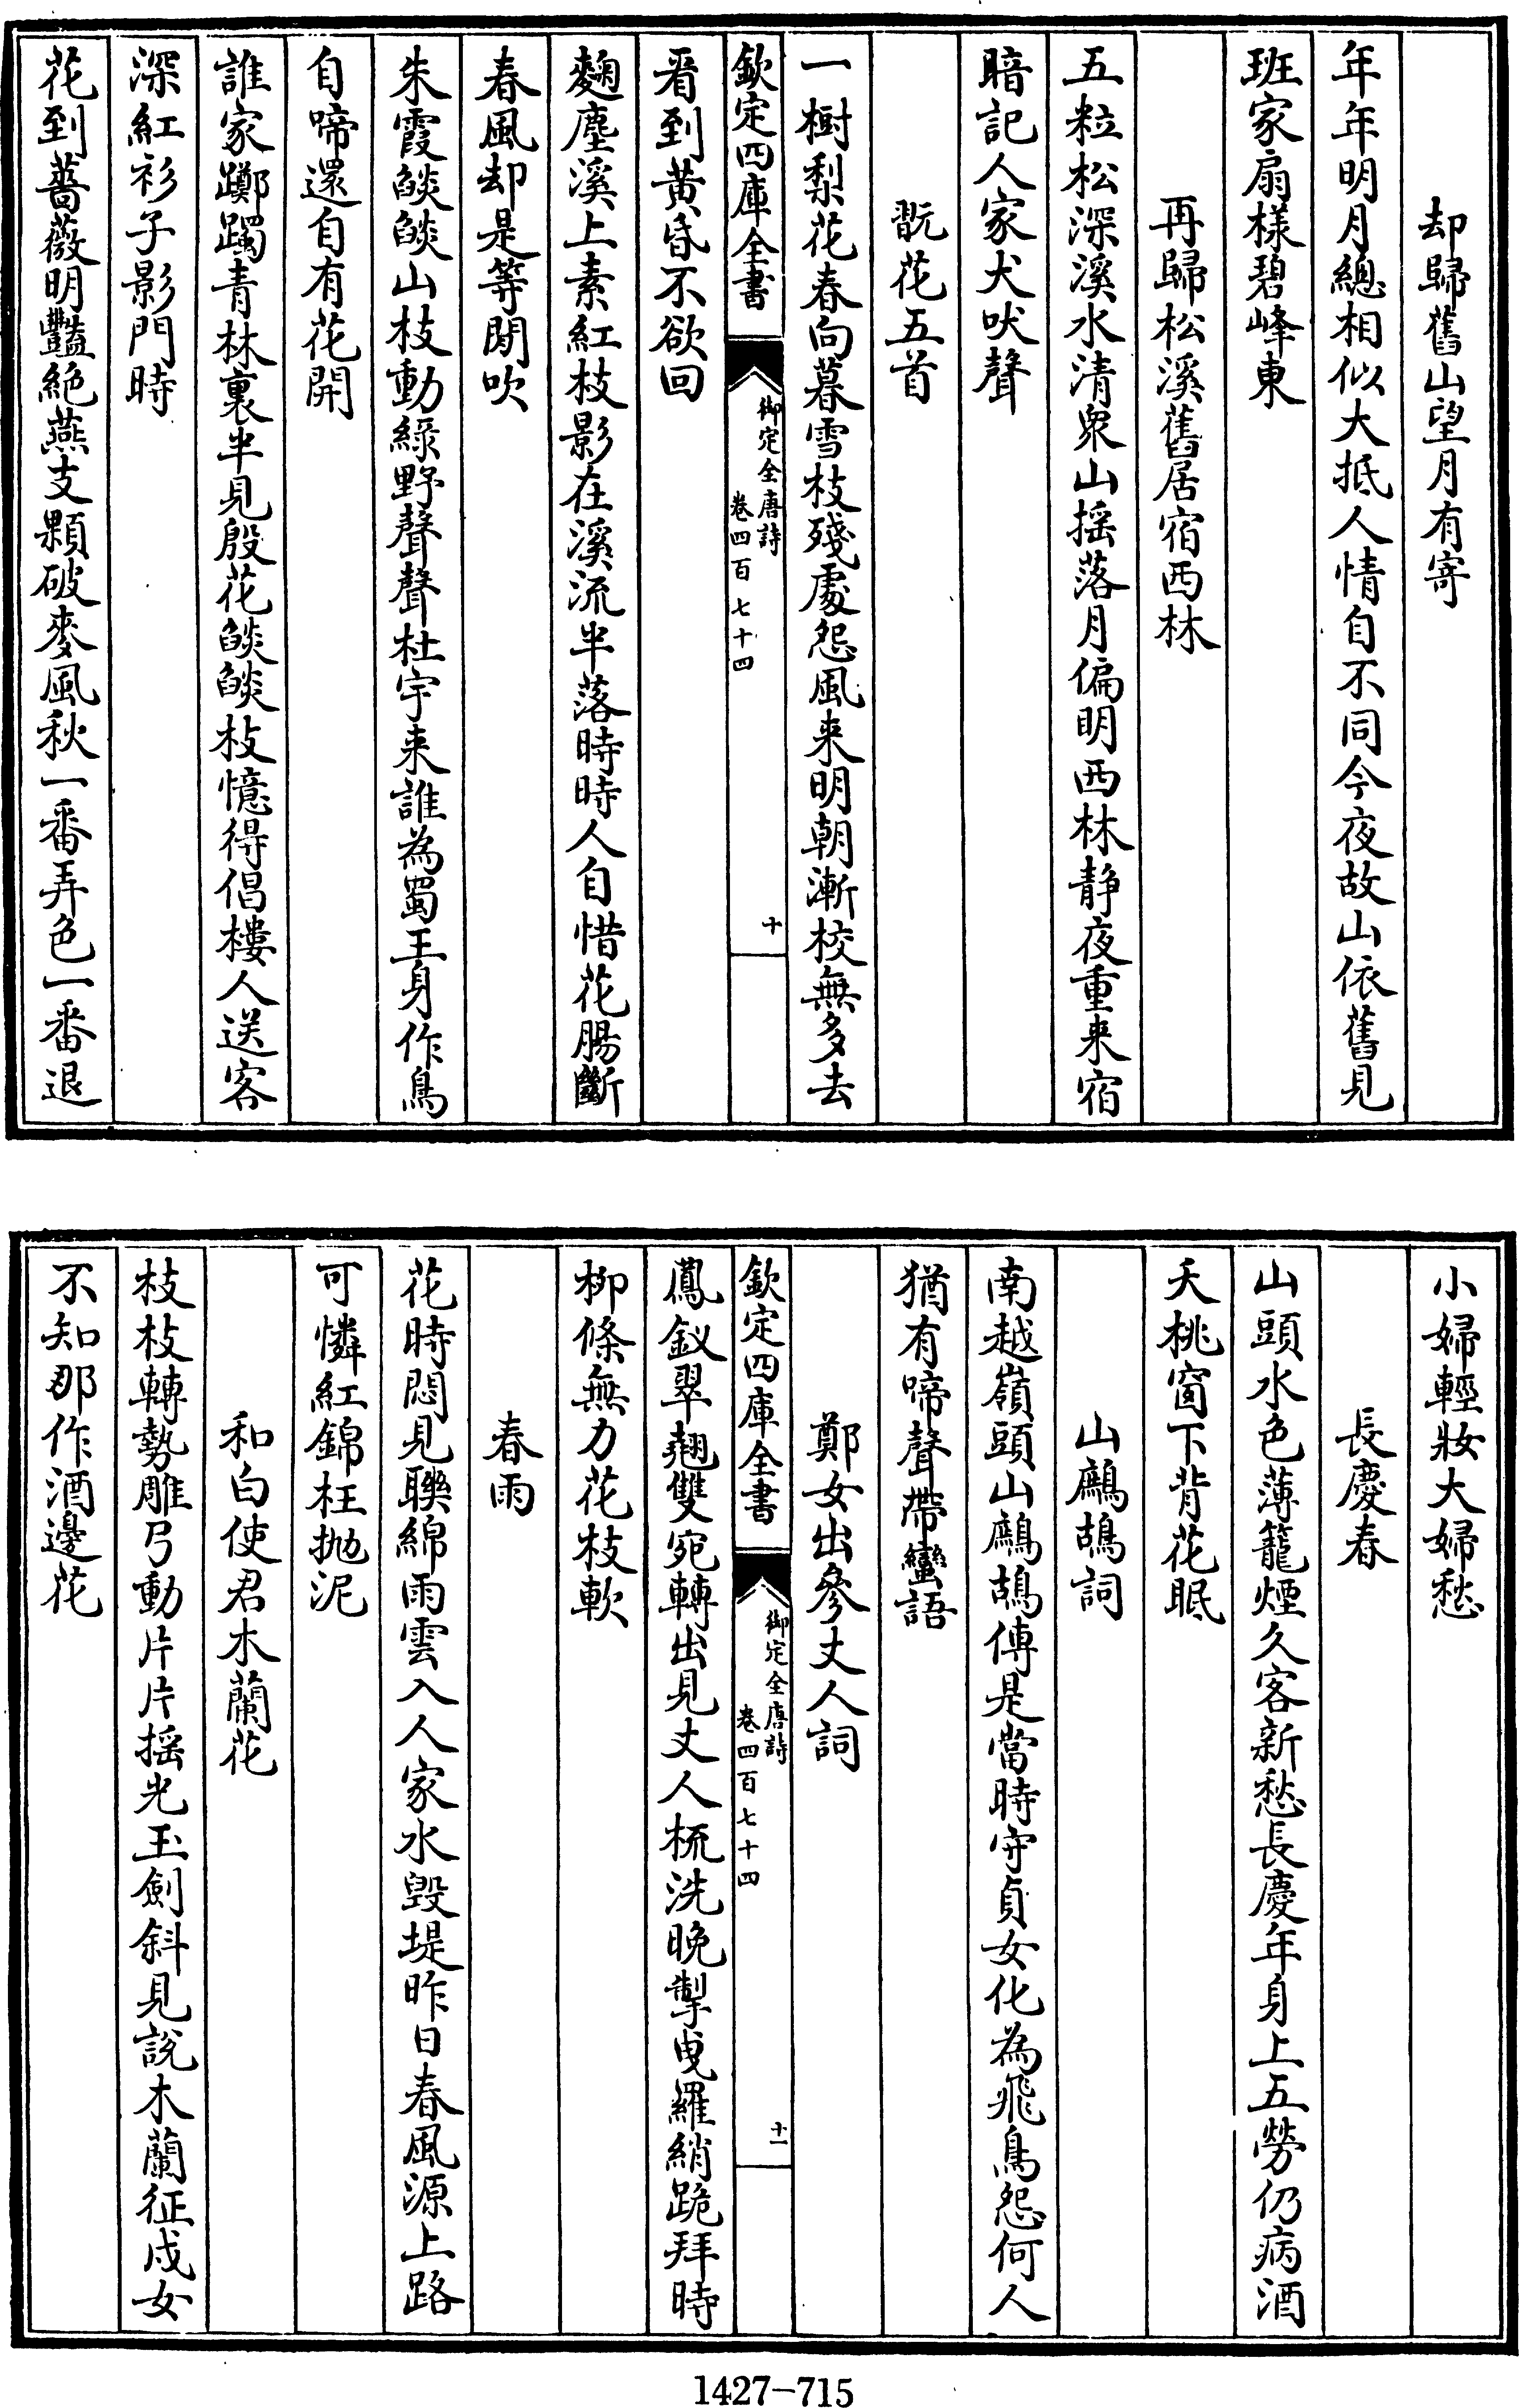 却歸舊山望月有寄
年年明月總相似大抵人情自不同今夜故山依舊見
班家扇樣碧峰東
再歸松溪舊居宿西林
五粒松深溪水清衆山搖落月偏明西林靜夜重来宿
暗記人家犬吠聲
翫花五首
一樹梨花春向暮雪枝殘處怨風来明朝漸校無多去
欽定四庫全書
御定全唐詩
卷四百七十四
十
看到黄昏不欲回
麴塵溪上素紅枝影在溪流半落時時人自惜花腸斷
春風却是等閒吹
朱霞燄燄山枝動綠野聲聲杜宇来誰為蜀王身作鳥
自啼還自有花開
誰家躑躅青林裏半見殷花燄燄枝憶得倡樓人送客
深紅衫子影門時
花到薔薇明豔絶燕支顆破麥風秋一番弄色一番退
小婦輕妝大婦愁
長慶春
山頭水色薄籠煙久客新愁長慶年身上五勞仍病酒
夭桃窗下背花眠
山鷓鴣詞
南越嶺頭山鷓鴣傳是當時守貞女化為飛鳥怨何人
猶有啼聲帶蠻語
鄭女出參丈人詞
欽定四庫全書
御定全唐詩
卷四百七十四
十一
鳳釵翠翹雙宛轉出見丈人梳洗晚掣曳羅綃跪拜時
柳條無力花枝軟
春雨
花時悶見聯綿雨雲入人家水毀堤昨日春風源上路
可憐紅錦枉抛泥
和白使君木蘭花
枝枝轉勢雕弓動片片搖光玉劍斜見說木蘭征戍女
不知那作酒邊花
1427-715